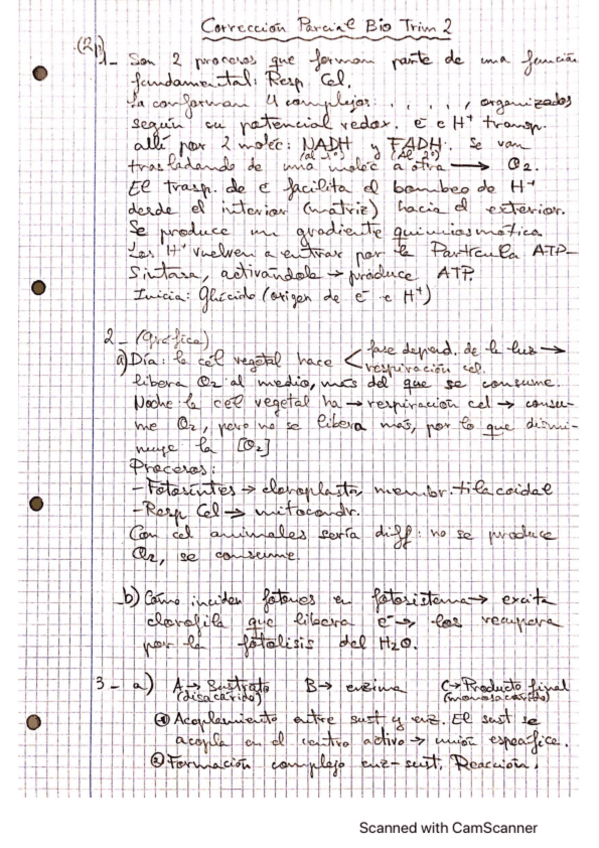 Corrección Parcial Bio Trim 2
(2p)
1- Son 2 procesos que forman parte de una función
fundamental: Resp Cel.
La conforman 4 complejos: . , . , . , . , organizados
según su potencial redox. e⁻ e H⁺ transp.
allí por 2 moléc: NADH y FADH. Se van
(al 1º) (Al 2º)
trasladando de una moléc a otra → O₂.
El trasp. de e⁻ facilita el bombeo de H⁺
desde el interior (matriz) hacia el exterior.
Se produce un gradiente quimiosmótica.
Los H⁺ vuelven a entrar por la Partícula ATP-
Sintasa, activándola → produce ATP.
Inicia: Glúcido (origen de e⁻ e H⁺)
2- (Gráfica)
a) Día: la cél vegetal hace < fase depend. de la luz →
respiración cel.
libera O₂ al medio, más del que se consume.
Noche: la cél vegetal ha → respiración cel → consu-
me O₂, pero no se libera más, por lo que dismi-
nuye la [O₂]
Procesos:
- Fotosíntes → cloroplasto, membr. tilacoidal
- Resp Cel → mitocondr.
Con cél animales sería diff: no se produce
O₂, se consume.
b) Cómo inciden fotones en fotosistema → excita
clorofila que libera e⁻ → los recupera
por la fotólisis del H₂O.
3- a) A → Sustrato B → enzima C → Producto final
(disacárido) (monosacárido)
① Acoplamiento entre sust y enz. El sust se
acopla en el centro activo → unión específica.
② Formación complejo enz-sust. Reacción.
Scanned with CamScanner